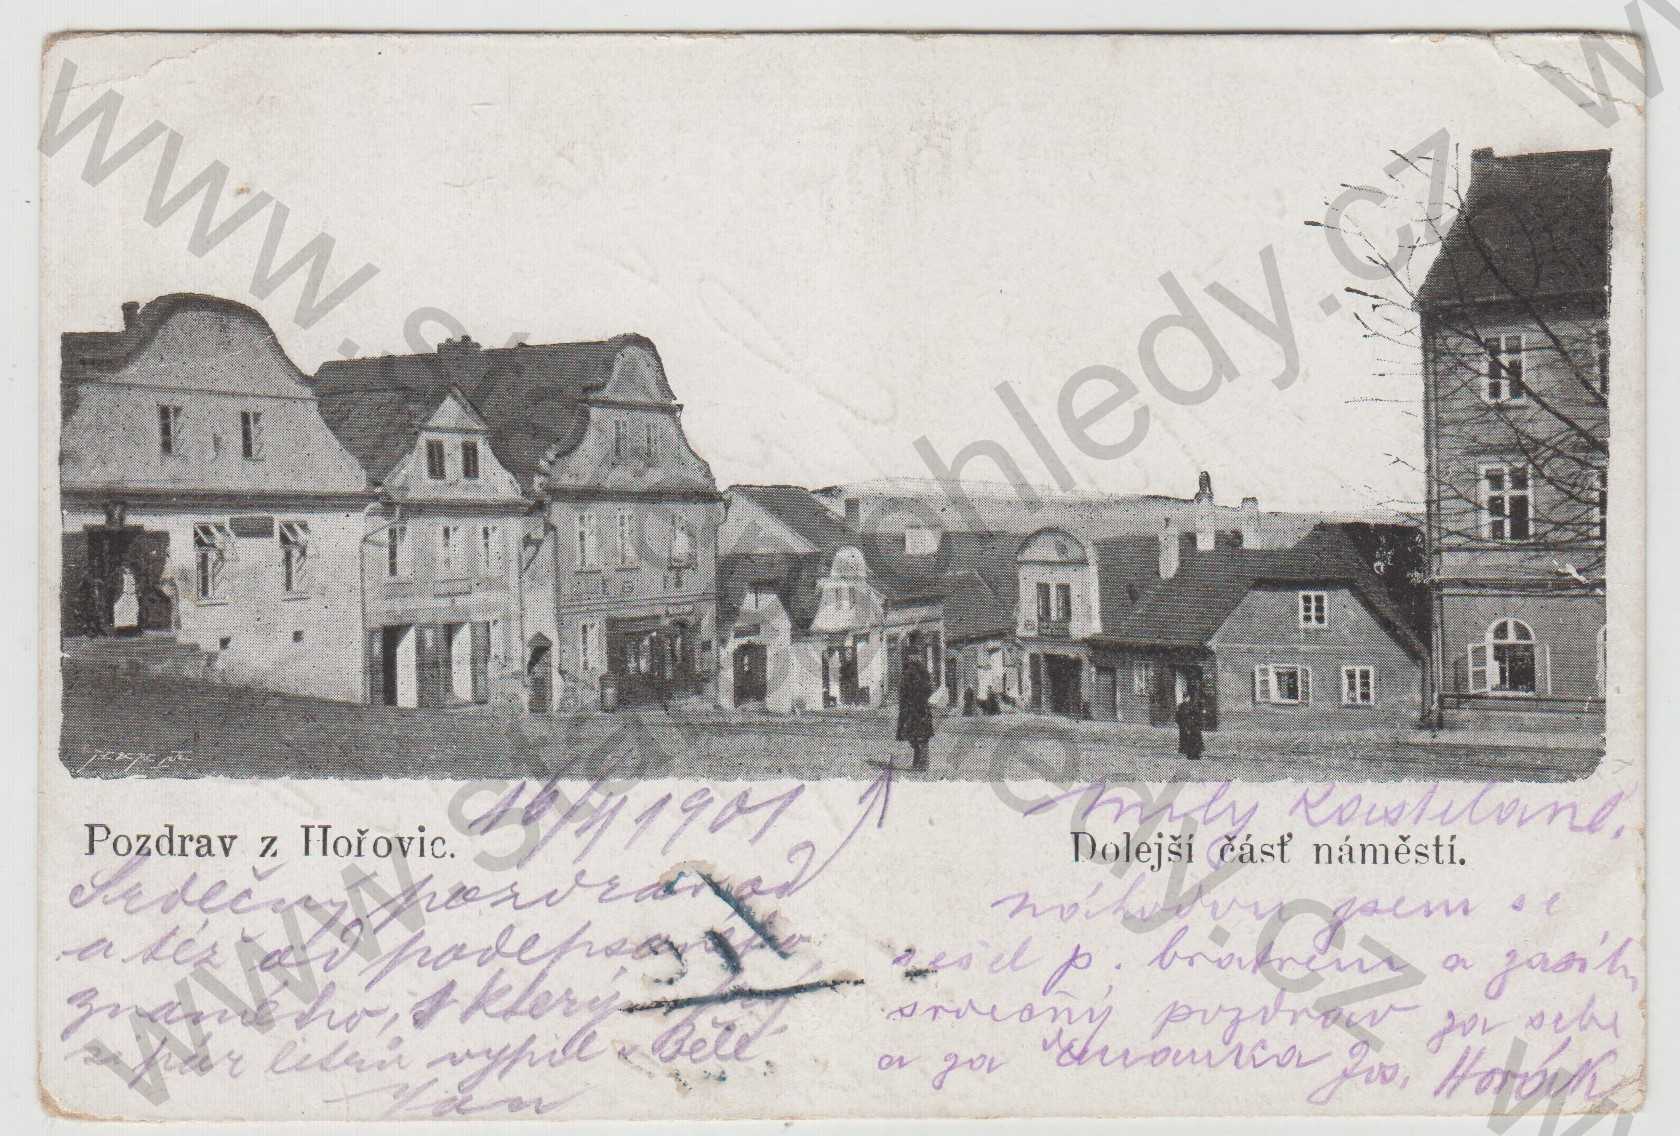 Pozdrav z Hořovic.
Dolejší část náměstí.
16/4 1901
Srdečný pozdrav od
a též od podepsaného
známého, s který
pár litrů vypil v Bělé.
Jan
Milý Kasteláne.
náhodou jsem se
sešel p. bratrem a zasílá
srdečný pozdrav za sebe
a za Jos. Horák
www.starepohledy.cz